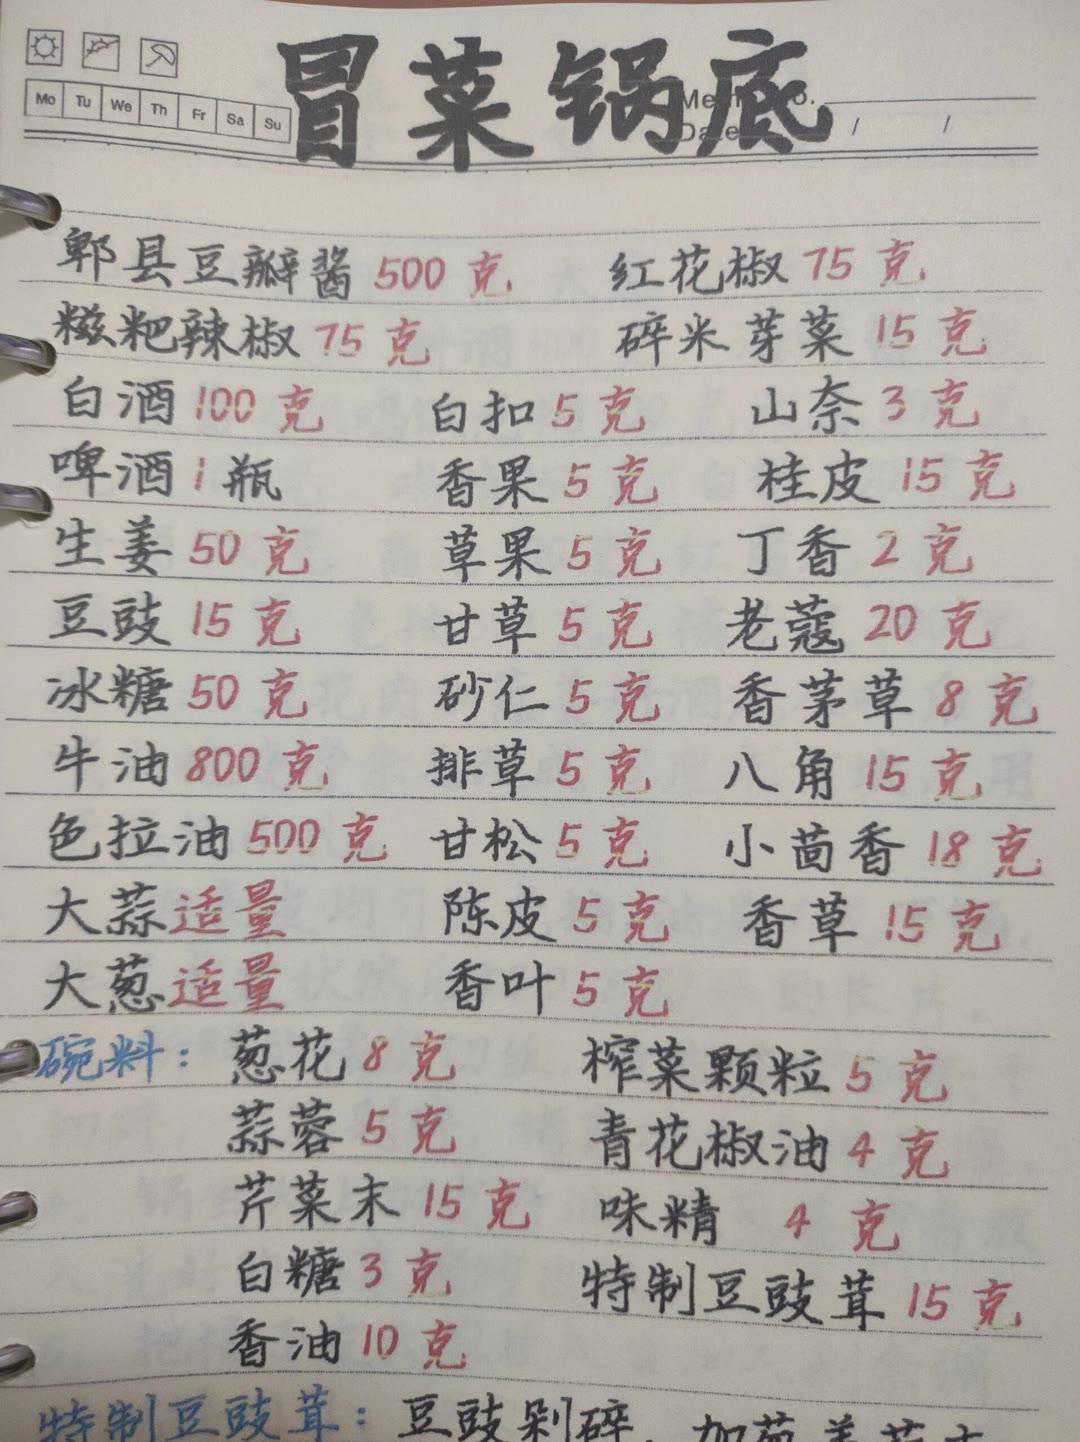 冒菜锅底
Mo Tu We Th Fr Sa Su
郫县豆瓣酱 500 克 红花椒 75 克
糍粑辣椒 75 克 碎米芽菜 15 克
白酒 100 克 白扣 5 克 山奈 3 克
啤酒 1 瓶 香果 5 克 桂皮 15 克
生姜 50 克 草果 5 克 丁香 2 克
豆豉 15 克 甘草 5 克 老蔻 20 克
冰糖 50 克 砂仁 5 克 香茅草 8 克
牛油 800 克 排草 5 克 八角 15 克
色拉油 500 克 甘松 5 克 小茴香 18 克
大蒜适量 陈皮 5 克 香草 15 克
大葱适量 香叶 5 克
碗料: 葱花 8 克 榨菜颗粒 5 克
蒜蓉 5 克 青花椒油 4 克
芹菜末 15 克 味精 4 克
白糖 3 克 特制豆豉茸 15 克
香油 10 克
特制豆豉茸: 豆豉剁碎,加葱姜蒜